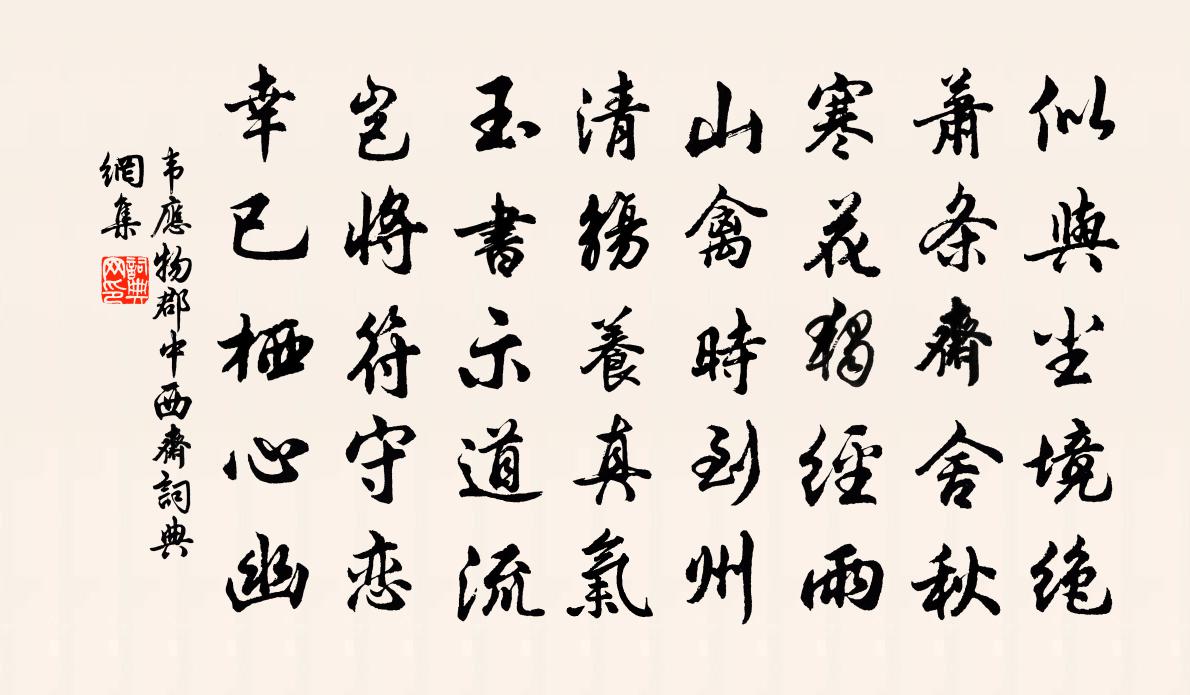 似與尘境绝
蕭条齋舍秋
寒花獨經雨
山禽時到州
清觴養真氣
玉書示道流
岂將符守恋
幸已栖心幽
韦應物郡中西齋詞典
網集
詞典
网印